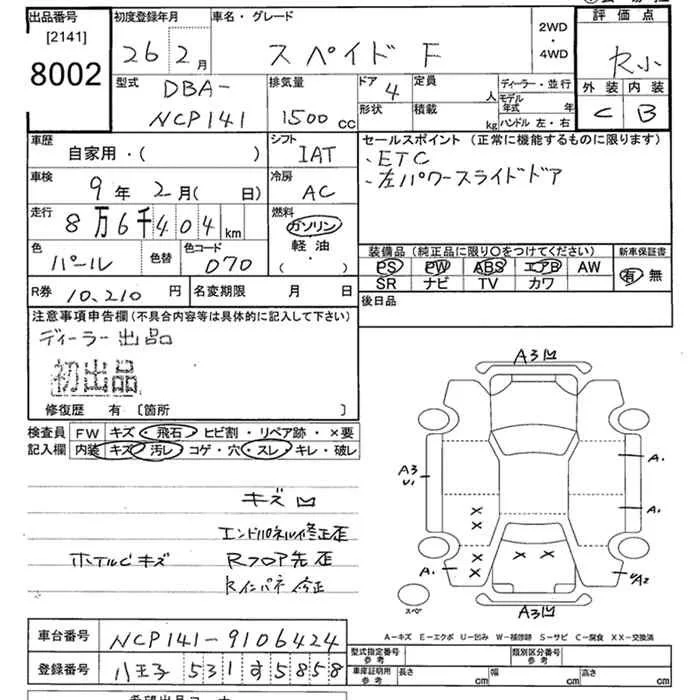 出品番号 初度登録年月 車名・グレード 2WD ・ 4WD 評価点
[2141]
8002
26 2月 スペイド F R小
型式 DBA- 排気量 ドア 4 定員 人 ディーラー・並行 外装 内装
NCP141 1500 cc 形状 積載 kg モデル年式 年 C B
ハンドル 左・右
車歴 自家用・( ) シフト IAT セールスポイント (正常に機能するものに限ります)
・ETC
車検 9年 2月( 日) 冷房 AC ・左パワースライドドア
走行 8万6千404km 燃料 ガソリン 軽油 ( ・ )
色 パール 色替 色コード 070 装備品 (純正品に限り○をつけてください) 新車保証書
PS PW ABS エアB AW 有 無
SR ナビ TV カワ
R券 10,210 円 名変期限 月 日 後日品
注意事項申告欄 (不具合内容等は具体的に記入して下さい)
ディーラー出品
初出品
修復歴 有 [箇所 ]
検査員 FW キズ・飛石・ヒビ割・リペア跡・×要
記入欄 内装 キズ・汚レ・コゲ・穴・スレ・キレ・破レ
キズ凹
エンドパネル修正歪
ホイルCキズ Rフロア先歪
Rインパネ修正
A3凹
A3 U1
A1
A1
A1
U/A2
A3凹
スペ
A-キズ E-エクボ U-凹み W-補修跡 S-サビ C-腐食 XX-交換済
車台番号 NCP141-9106424 型式指定番号 参考 類別区分番号 参考
登録番号 八王子 531 す 5858 車庫証明用 参考 長さ cm 幅 cm 高さ cm